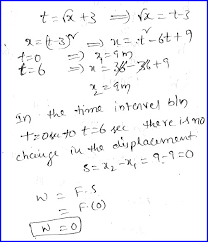 t = √x + 3 ⟹ √x = t-3
x = (t-3)² ⟹ x = t² - 6t + 9
t=0 ⟹ x₁ = 9m
t=6 ⟹ x = 36 - 36 + 9
x₂ = 9m
In the time interval b/n
t=0 sec to t=6 sec there is no
change in the displacement
S = x₂ - x₁ = 9-9 = 0
W = F.S
= F.(0)
W = 0